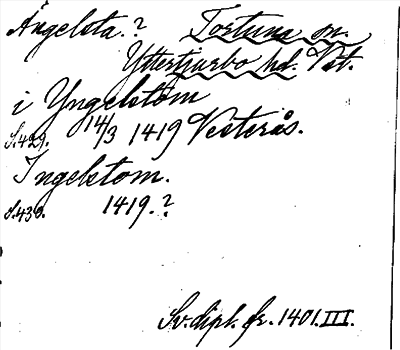 Ängelsta.? Tortuna sn.
Yttertjurbo hd. Vst.
i Yngelstom
S.429. 14/3 1419 Vesterås.
Ingelstom.
S.430. 1419.?
Sv. dipl. fr. 1401. III.